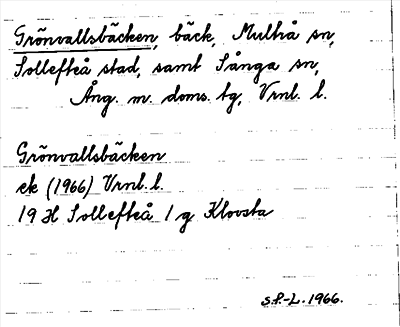 Grönvallsbäcken, bäck, Multrå sn,
Sollefteå stad, samt Sånga sn,
Ång. m. doms. tg, Vrnl. l.
Grönvallsbäcken
ek (1966) Vrnl. l.
19 H Sollefteå 1 g Klovsta
S.P.-L. 1966.